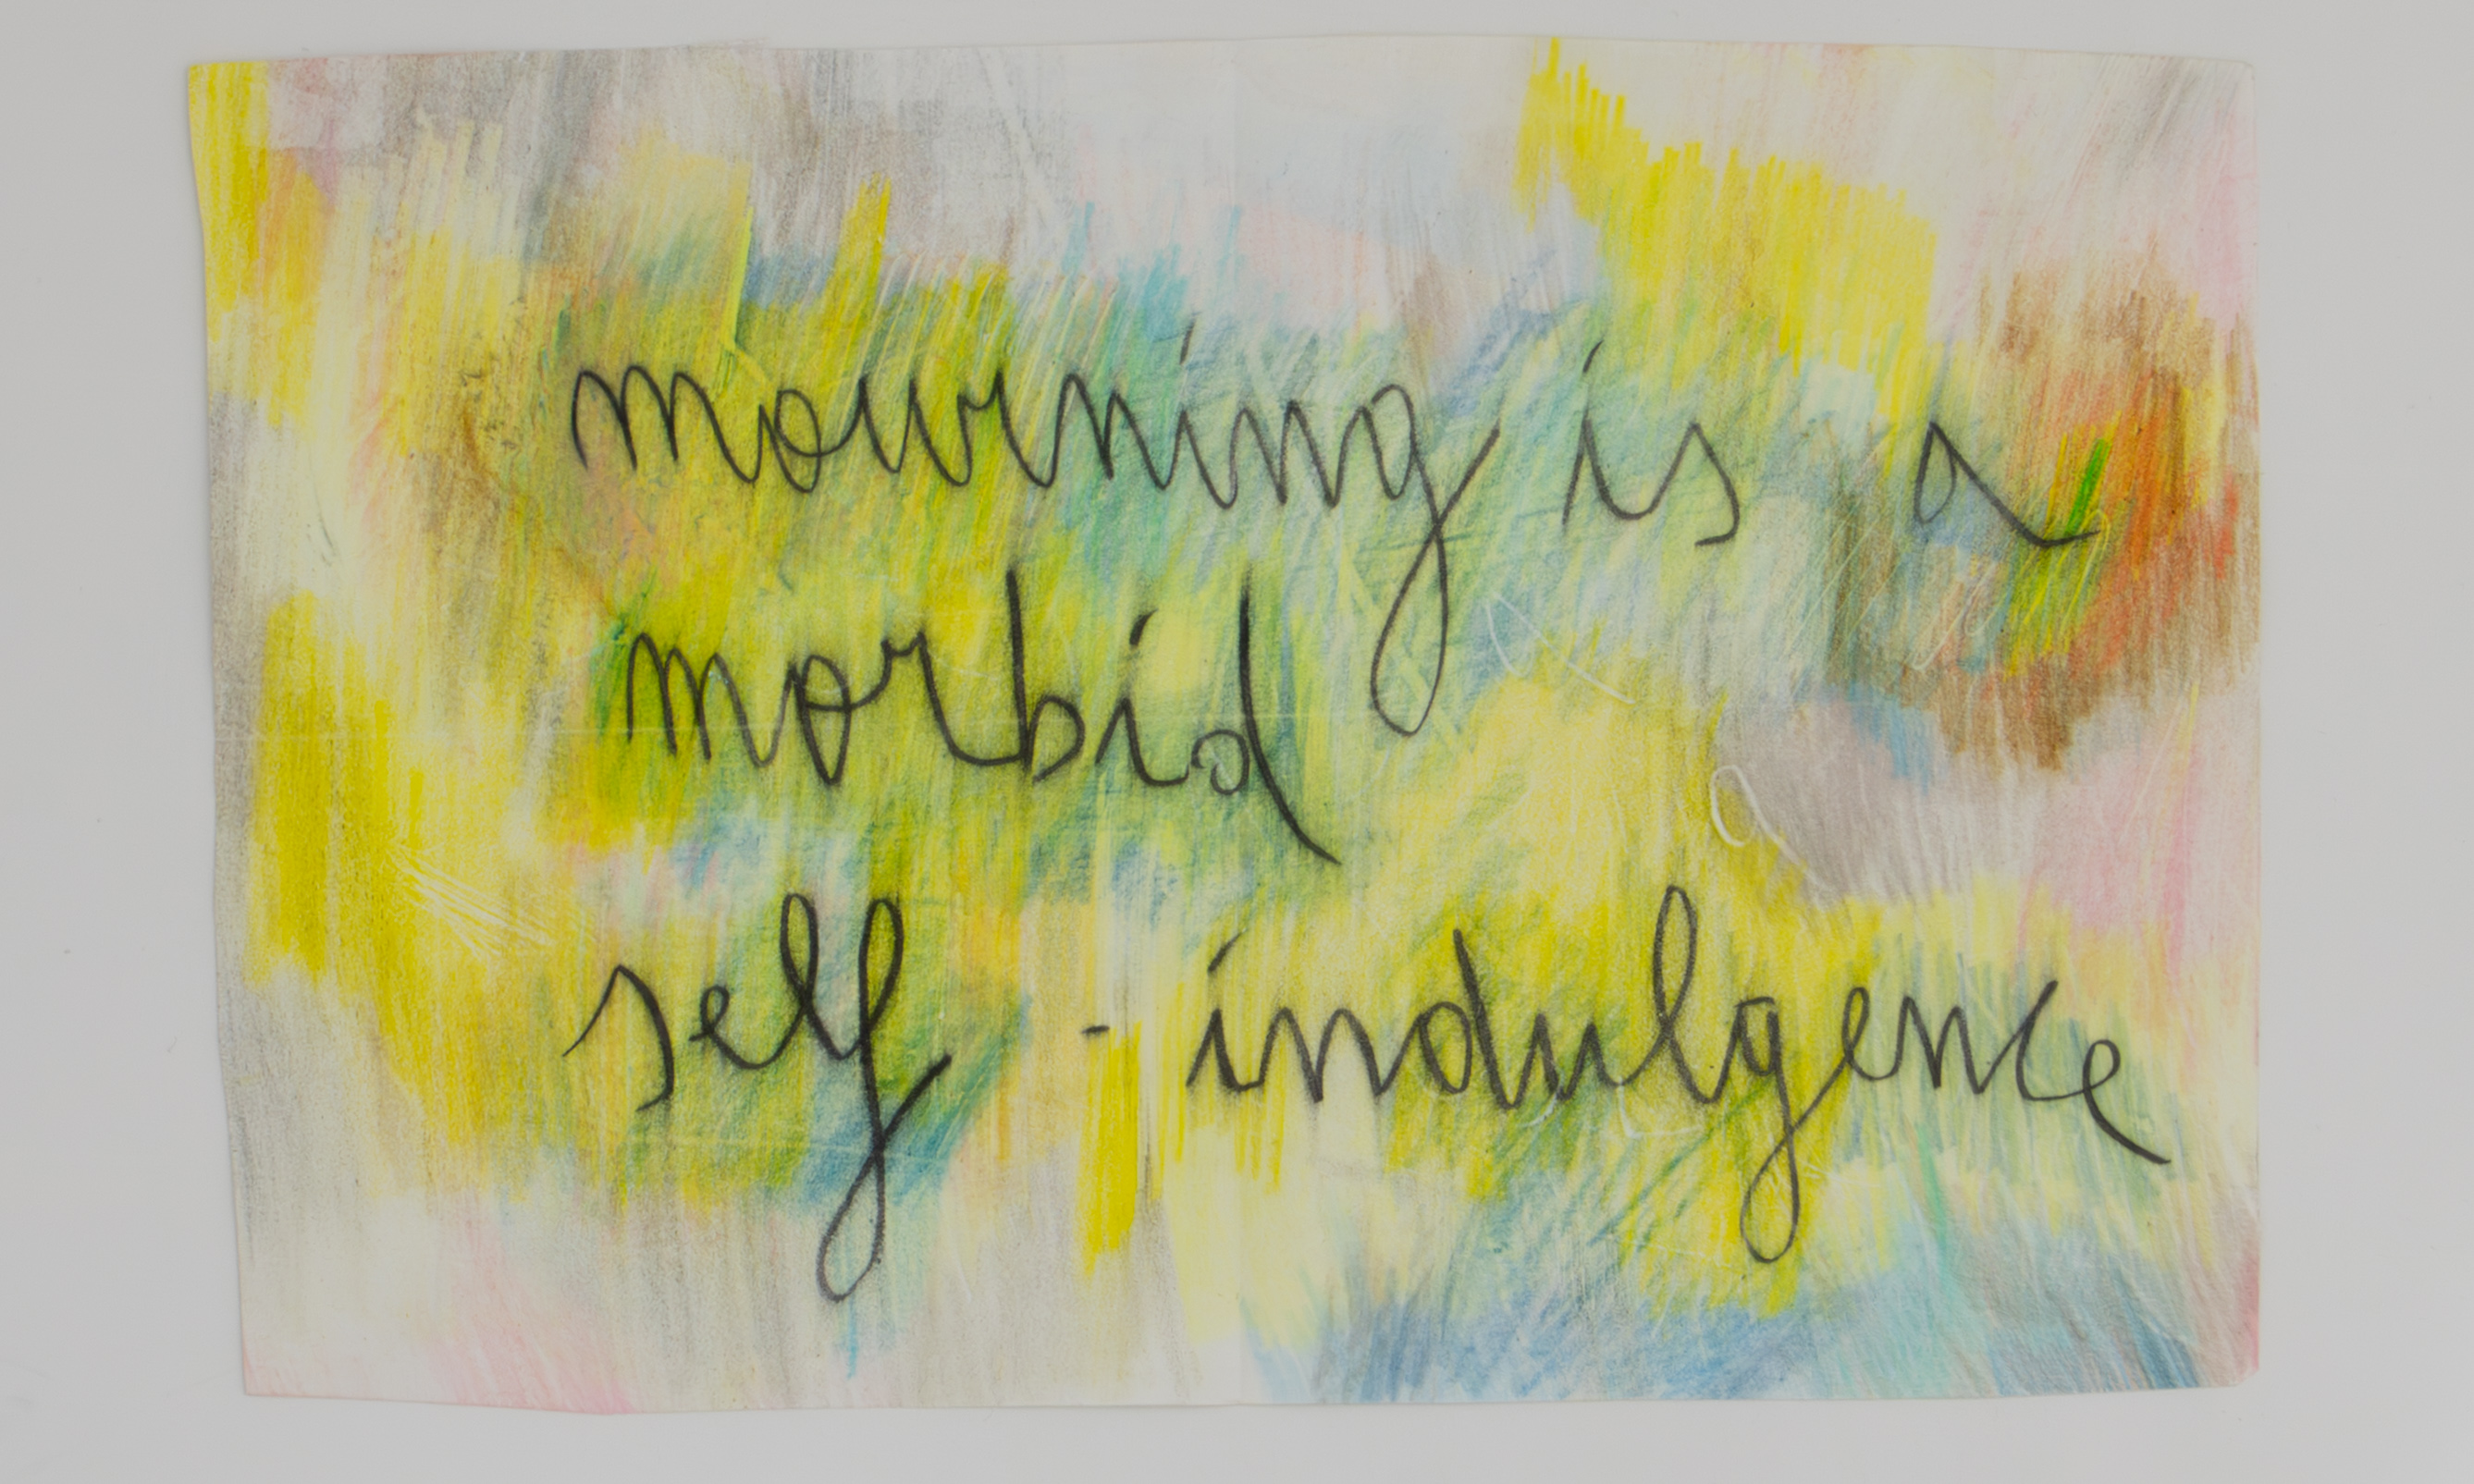 mourning is a
morbid
self-indulgence